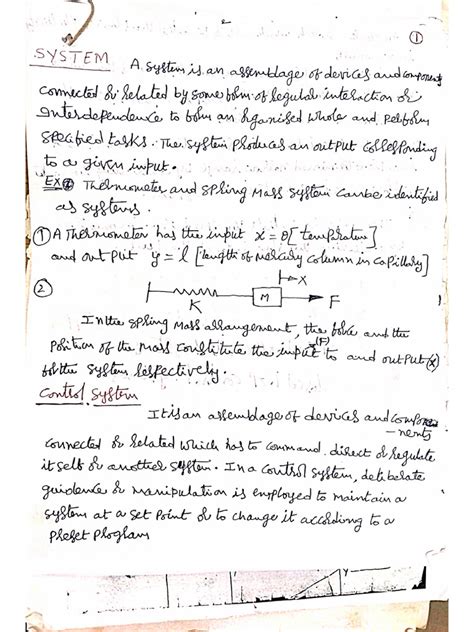 2
①
SYSTEM A system is an assemblage of devices and components
connected or related by some form of regular interaction or
Interdependence to form an organised whole and perform
specified tasks. The system produces an output corresponding
to a given input.
EX Thermometer and spring mass system can be identified
as systems.
① A thermometer has the input x = θ [temperature]
and output y = l [length of mercury column in capillary]
②
x
K
M
F
In the spring mass arrangement, the force and the
(F)
position of the mass constitute the input to and output (x)
for the system respectively.
Control System
It is an assemblage of devices and compo
-nents
connected or related which has to command, direct or regulate
itself or another system. In a control system, deliberate
guidence or manipulation is employed to maintain a
system at a set point or to change it according to a
preset program